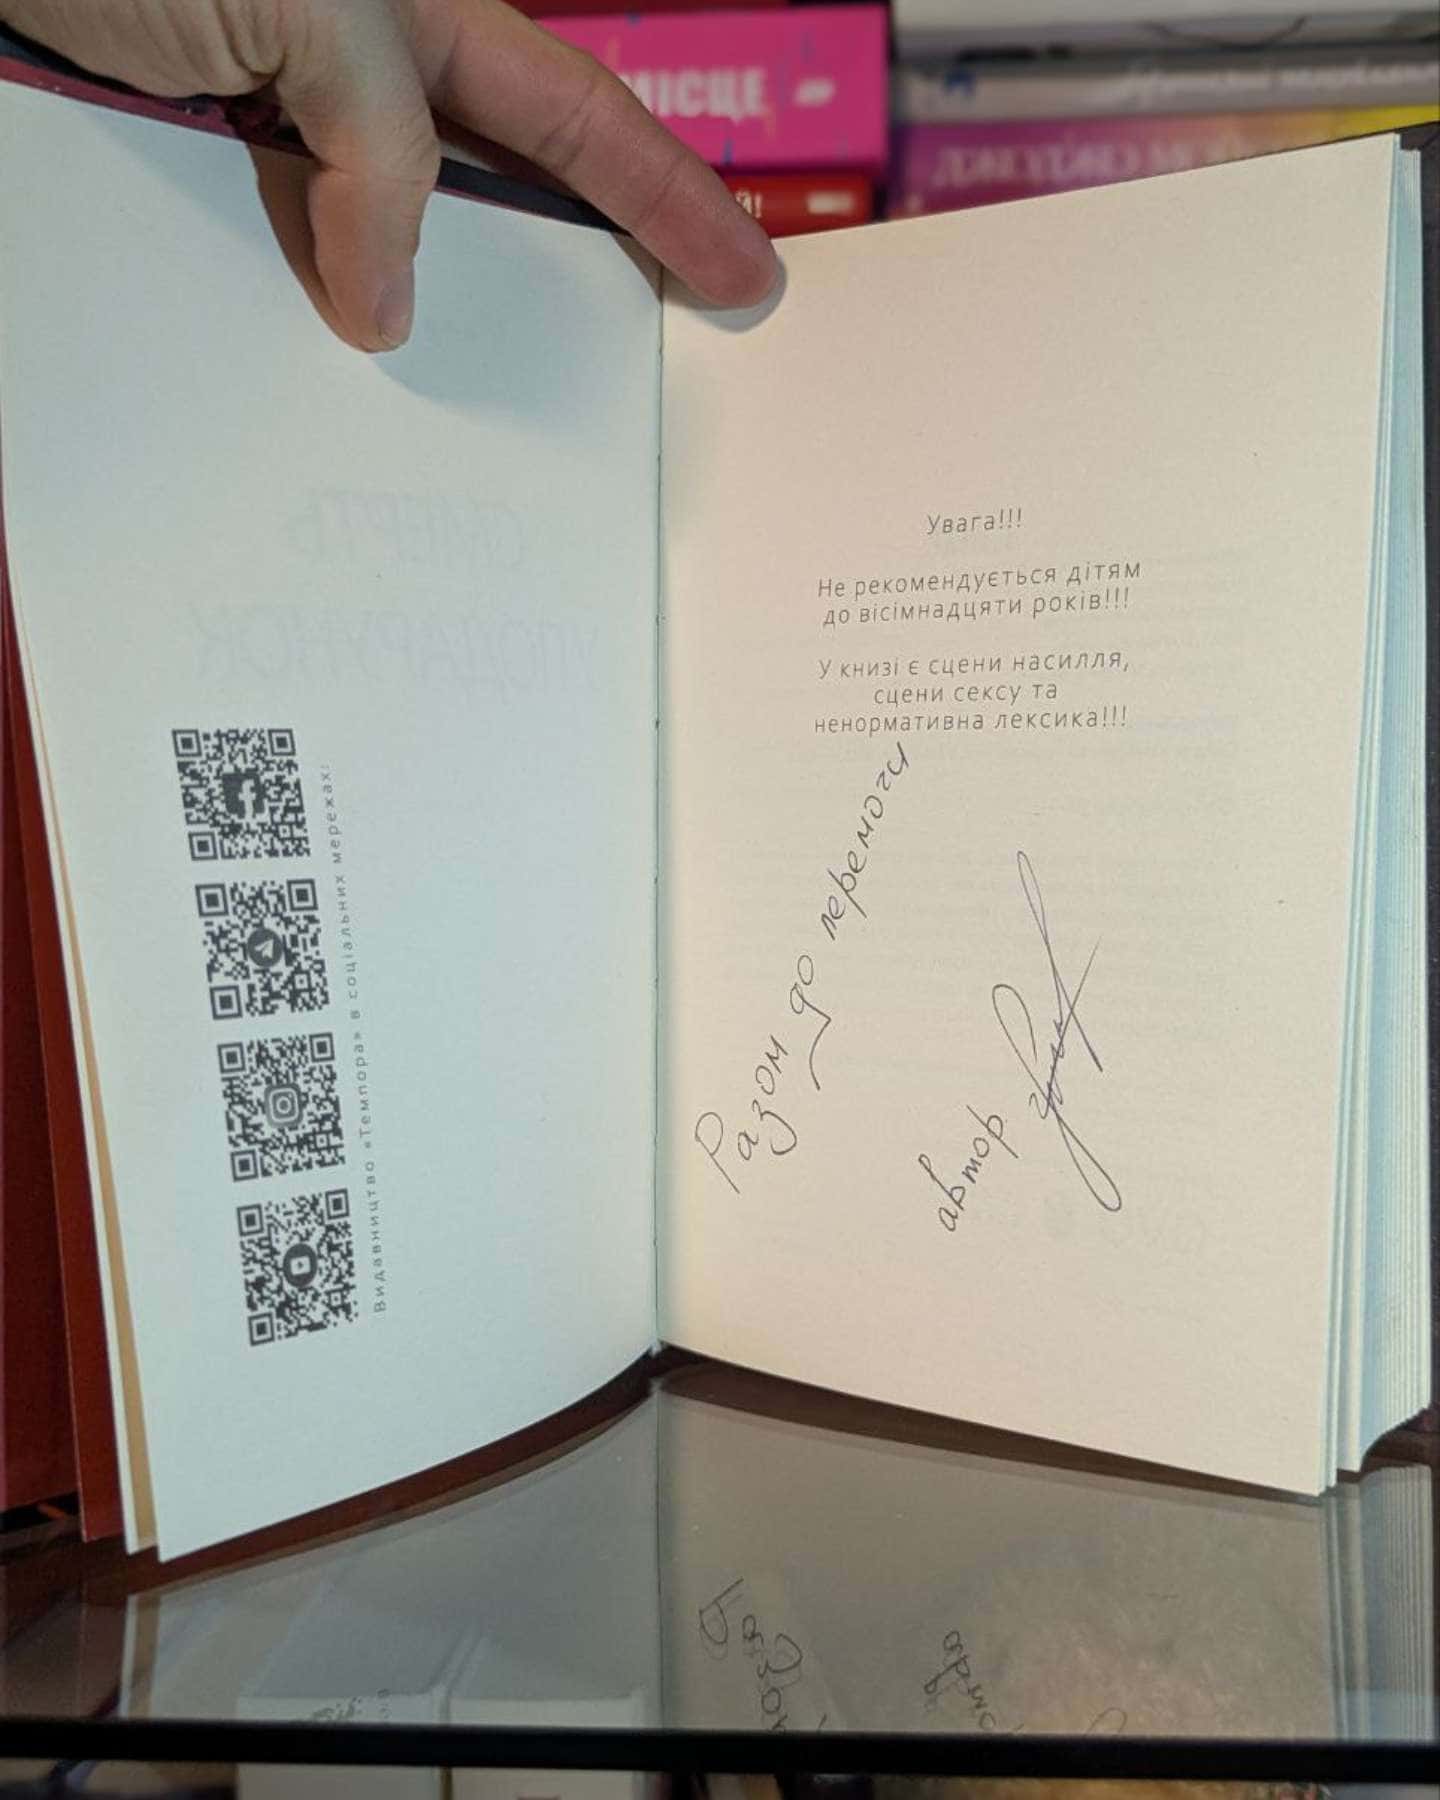 МІСЦЕ
Й!
Видавництво «Темпора» в соціальних мережах:
Увага!!!
Не рекомендується дітям
до вісімнадцяти років!!!
У книзі є сцени насилля,
сцени сексу та
ненормативна лексика!!!
Разом до перемоги
автор